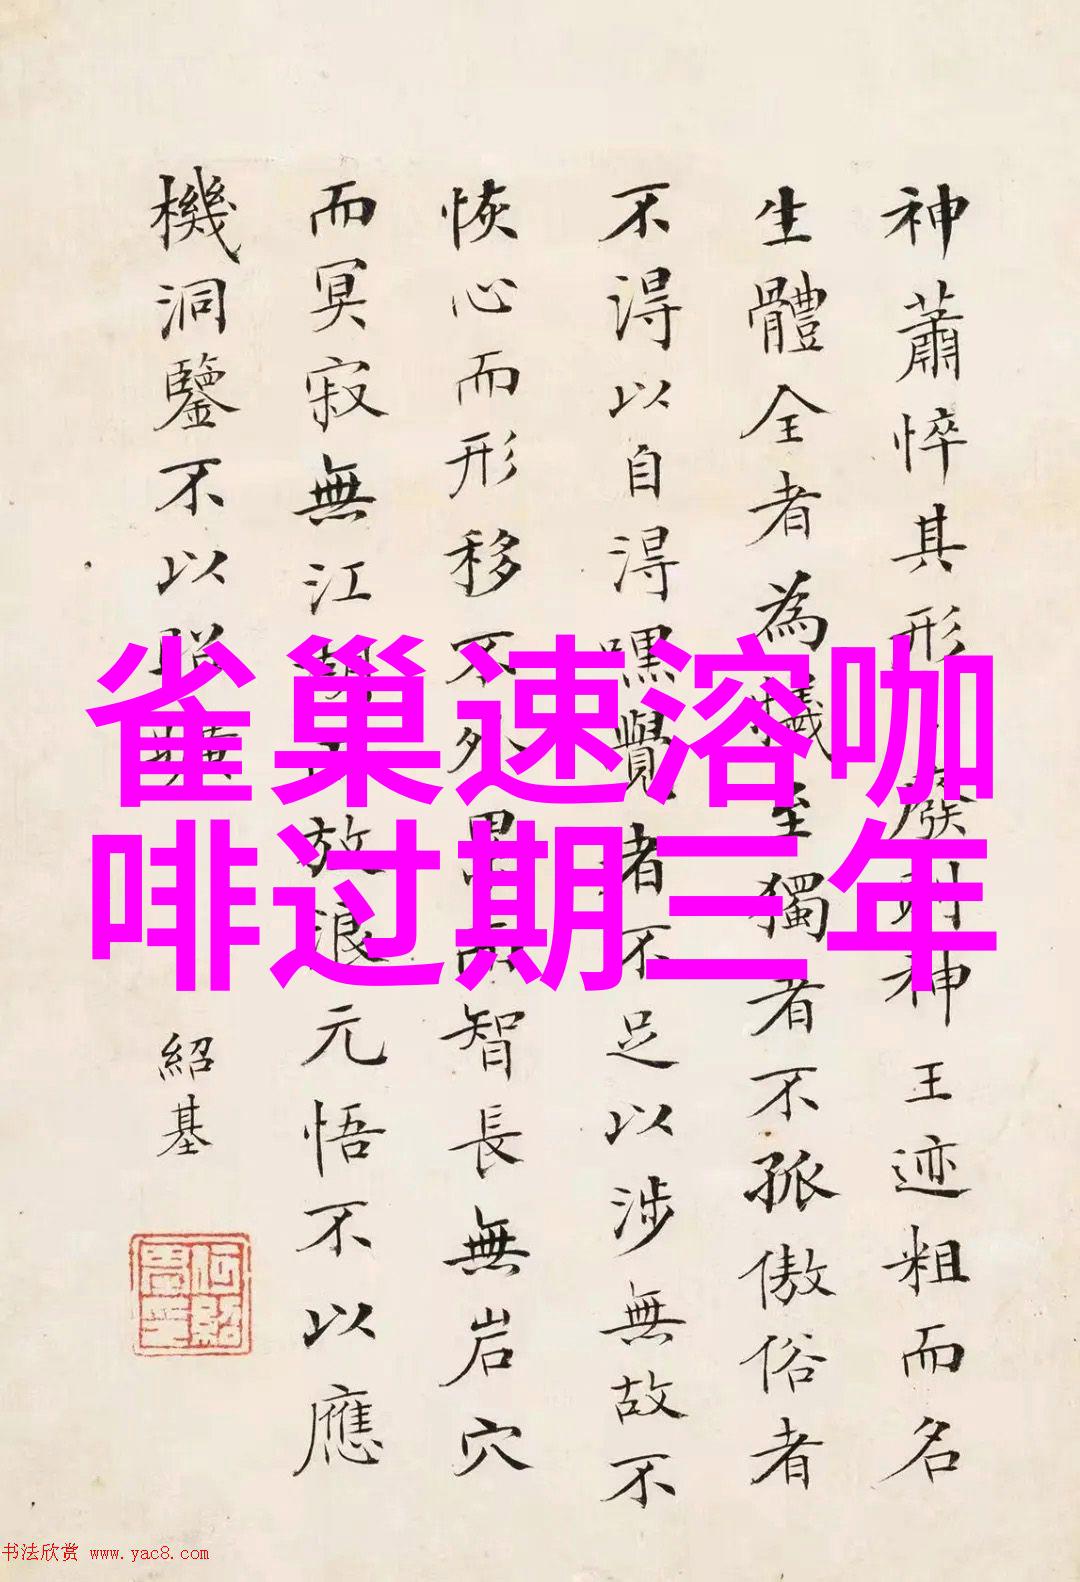 神蕭悴其形廢則神王迹粗而名
生體全者為犧至獨者不孤傲俗者
不得以自得嘿覺者不足以涉無故不
恢心而形移不外智長無岩穴
而冥寂無江放浪元悟不以應
機洞鑒不以
紹基
雀巢速溶咖
啡过期三年
书法欣赏 www.yac8.com